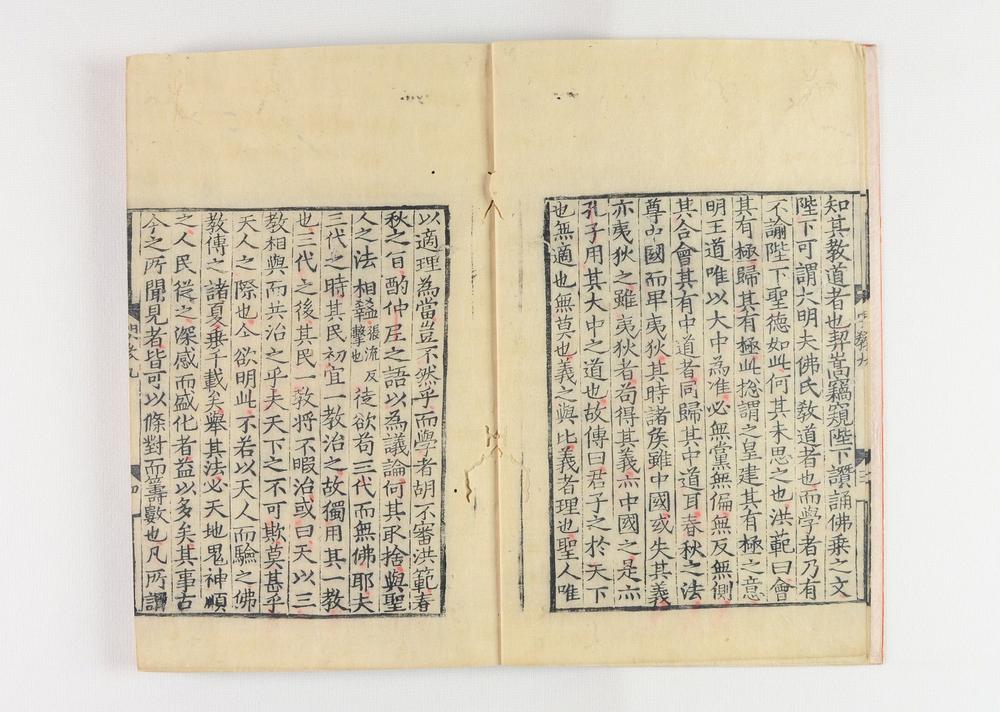 知其教道者也契嵩竊窺陛下讚誦佛乗之文
陛下可謂大明夫佛氏教道者也而學者乃有
不諭陛下聖德如此何其未思之也洪範曰會
其有極歸其有極此捴謂之皇建其有極之意
明王道唯以大中為准必無黨無偏無反無側
其合會其有中道者同歸其中道耳春秋之法
尊中國而卑夷狄其時諸矦雖中國或失其義
亦夷狄之雖夷狄者苟得其義亦中國之是亦
孔子用其大中之道也故傳曰君子之於天下
也無適也無莫也義之與比義者理也聖人唯
以適理為當豈不然乎而學者胡不審洪範春
秋之旨酌仲尼之語以為議論何其取捨與聖
人之法相盭張流反擊也徒欲苟三代而無佛耶夫
三代之時其民初宜一教治之故獨用其一教
也三代之後其民一教将不暇治或曰天以三
教相與而共治之乎夫天下之不可欺莫甚乎
天人之際也今欲明此不若以天人而驗之佛
教傳之諸夏垂千載矣舉其法必天地鬼神順
之人民從之深感而盛化者益以多矣其事古
今之所聞見者皆可以條對而籌數也凡所謂
四